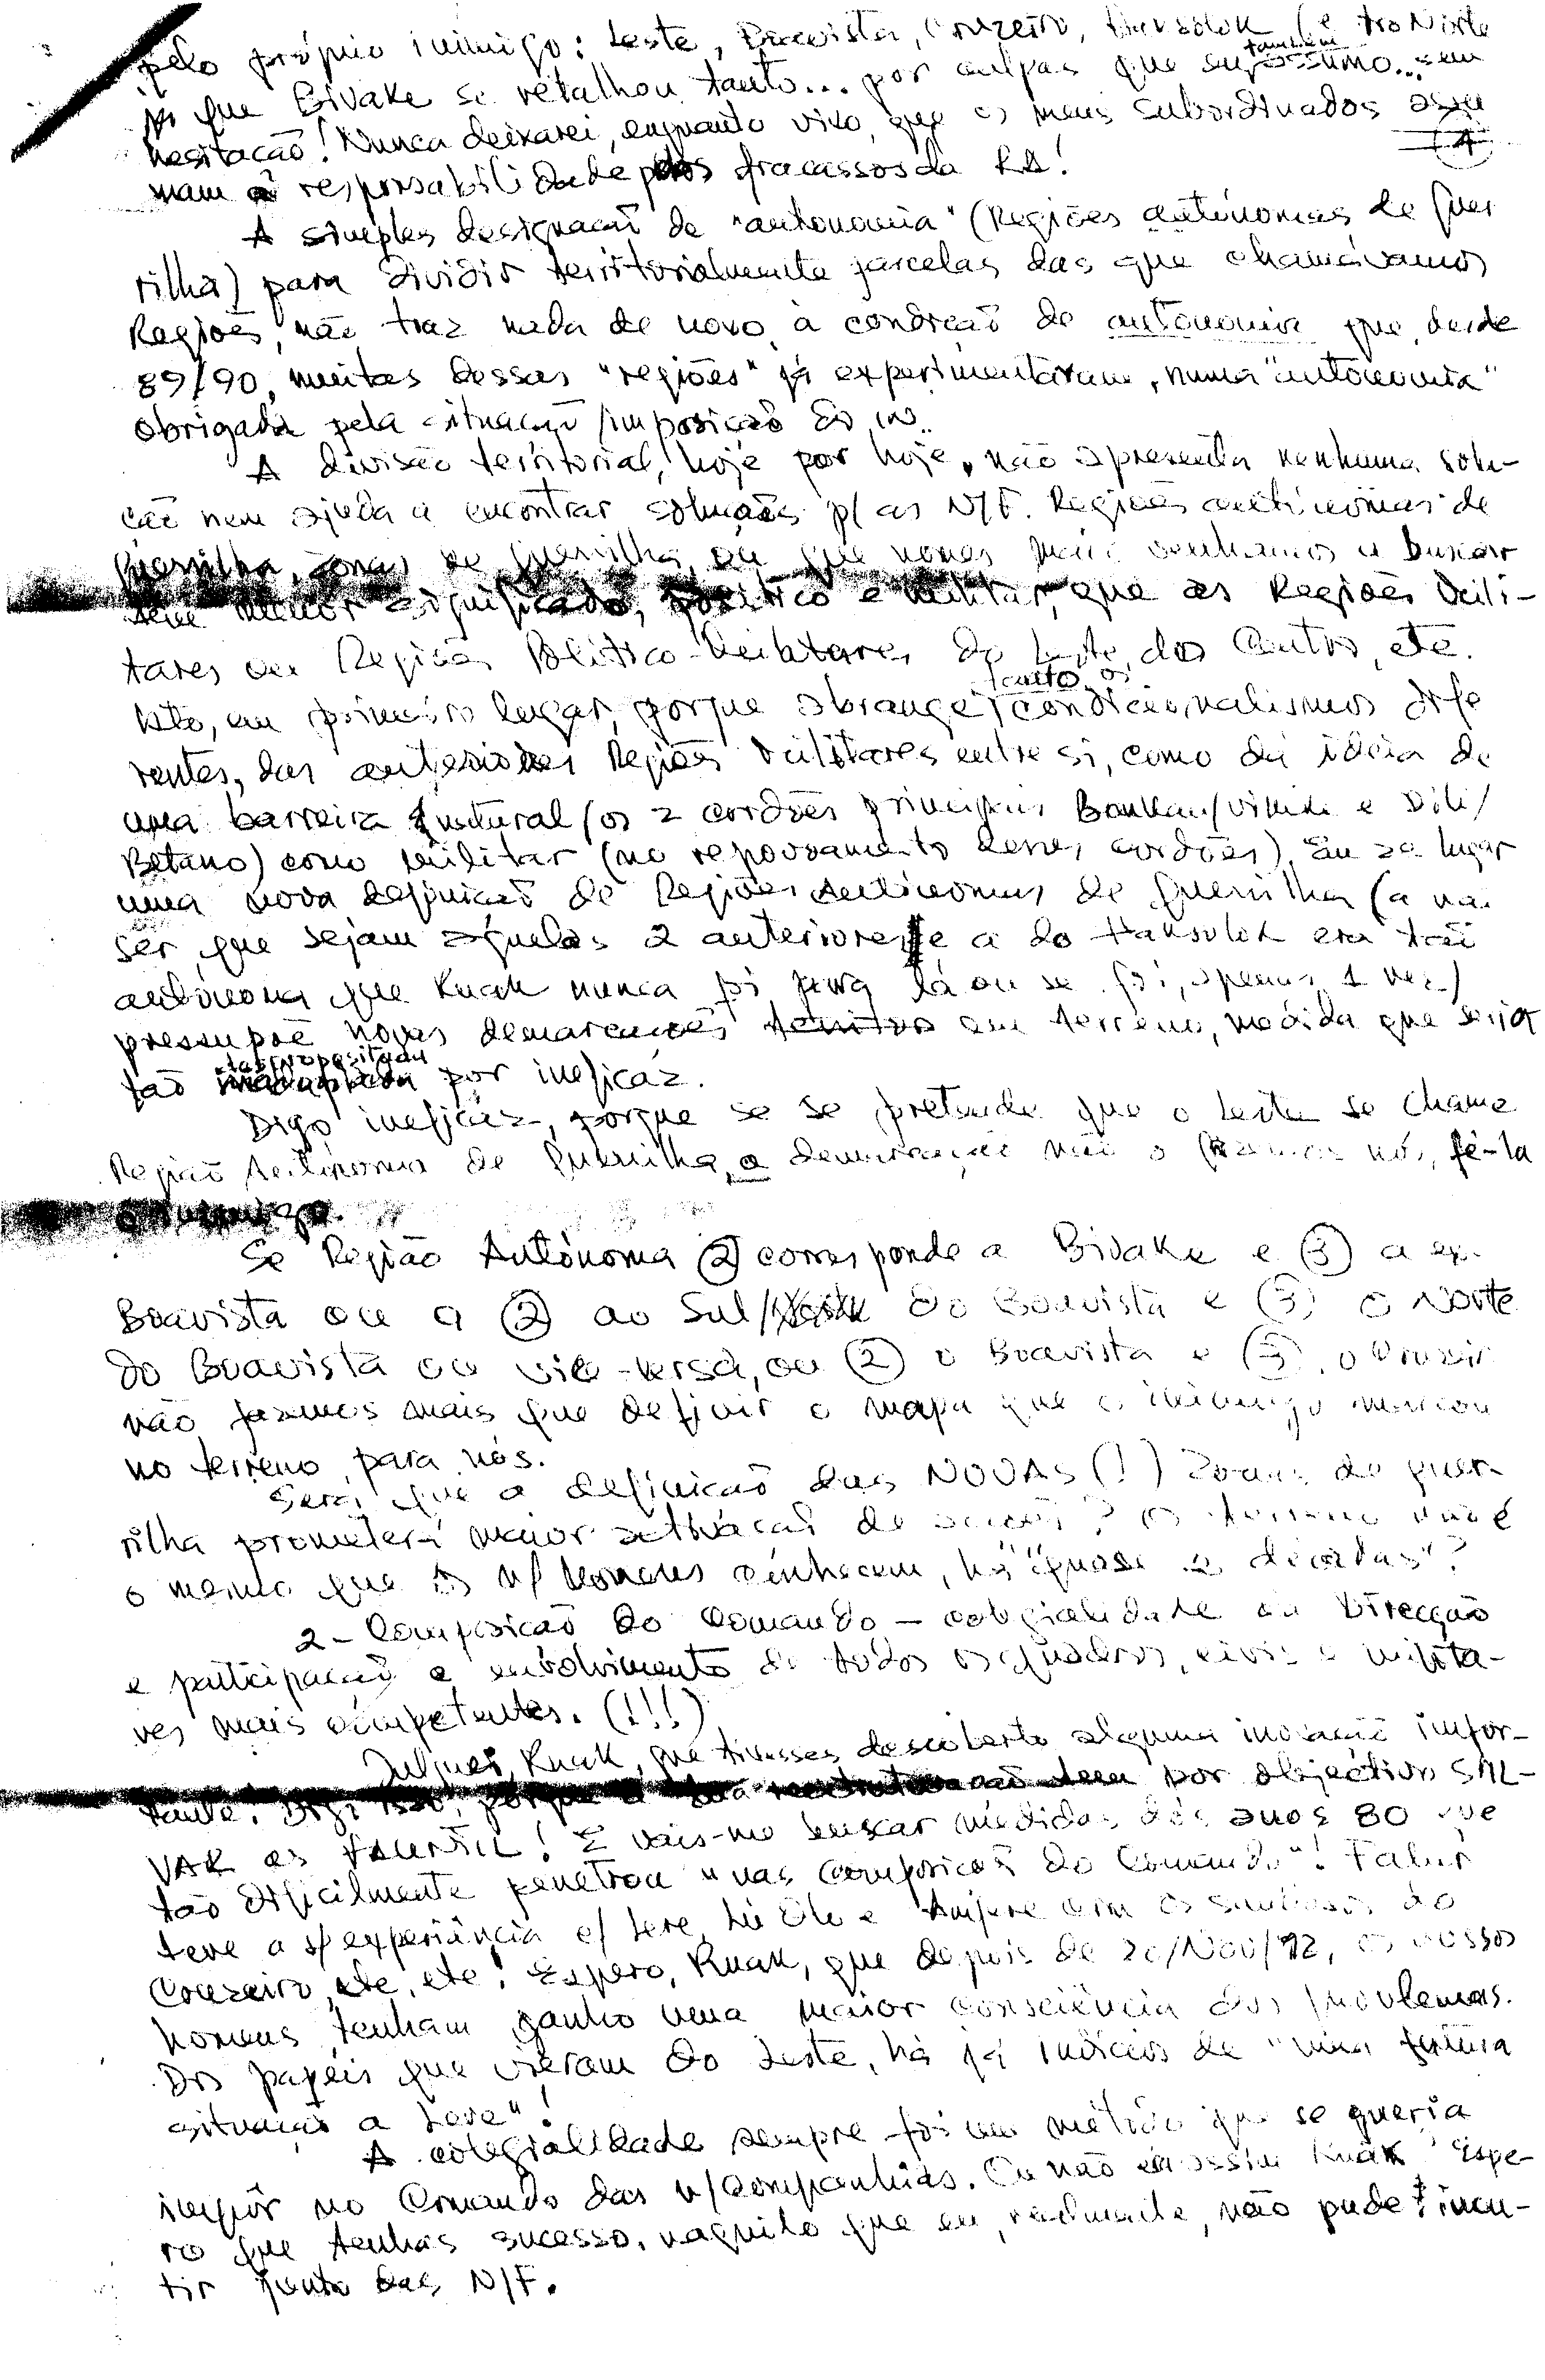 pelo próprio inimigo: Leste, Boavista, Cruzeiro, Haksolok (e no Norte
que Bivake se retalhou tanto... por culpas que também suposto sem
hesitação! Nunca deixarei, enquanto vivo, que os meus subordinados assu
(4)
mam a responsabilidade pelos fracassos da RA!
A simples designação de "autonomia" (Regiões autónomas de Guer
rilha) para dividir territorialmente parcelas das que chamávamos
Regiões, não traz nada de novo à condição de autonomia que, desde
89/90, muitas dessas "regiões" já experimentaram, numa "autonomia"
obrigada pela situação/imposição do in.
A divisão territorial, hoje por hoje, não apresenta nenhuma solu-
ção nem ajuda a encontrar soluções p/ as N/F. Regiões autónomas de
Guerrilha, zonas de Guerrilha, ou que nomes mais venhamos a buscar
tem menor significado, político e militar, que as Regiões Mili-
tares ou Regiões Político-Militares do Leste, do Centro, etc.
Isto, em primeiro lugar, porque abrange tanto os condicionalismos dife
rentes, das anteriores Regiões Militares entre si, como dá ideia de
uma barreira natural (os 2 cordões principais Baukau/Vikeke e Dili/
Betano) como militar (no repovoamento desses cordões). Em 2º lugar
uma nova definição de Regiões Autónomas de Guerrilha (a não
ser, que sejam aquelas 2 anteriores e a do Haksolok era tão
autónoma que Ruak nunca foi para lá ou se foi, apenas 1 vez)
pressupõe novas demarcações em terreno, medida que seria
tão despropositada por ineficaz.
Digo ineficaz, porque se se pretende que o Leste se chame
Região Autónoma de Guerrilha, a demarcação não o fizemos nós, fê-la
o inimigo.
Se Região Autónoma (2) corresponde a Bivake e (3) a ex-
Boavista ou a (2) ao Sul do Boavista e (3) o Norte
do Boavista ou vice-versa, ou (2) o Boavista e (3) o Cruzeiro
não fazemos mais que definir o mapa que o inimigo marcou
no terreno, para nós.
Será que a definição das NOVAS (!) Zonas de guer-
rilha prometerá maior activação de acções? O terreno não é
o mesmo que os n/ homens conhecem, há "quase 2 décadas"?
2- Composição do Comando - colegialidade da Direcção
e participação e envolvimento de todos os quadros, civis e milita-
res mais competentes. (!!!)
Julguei, Ruak, que tivesses descoberto alguma inovação impor-
tante. Digo isso, porque a tua reestruturação tem por objectivo SAL-
VAR as FALINTIL! E vais-me buscar medidas dos anos 80 que
tão dificilmente penetrou "nas composições do Comando"! Falur
teve a s/ experiência c/ Lere, Lu Olo e com os do
Cruzeiro, etc, etc! Espero, Ruak, que depois de 20/Nov/92, os nossos
homens, tenham ganho uma maior consciência dos problemas.
Dos papéis que vieram do Leste, há já indícios de "uma futura
situação a Lere"!
A colegialidade sempre foi um método que se queria
impôr no Comando das n/ companhias. Ou não é assim Ruak? Espe-
ro que tenhas sucesso, naquilo que eu, realmente, não pude incu-
tir junto das N/F.